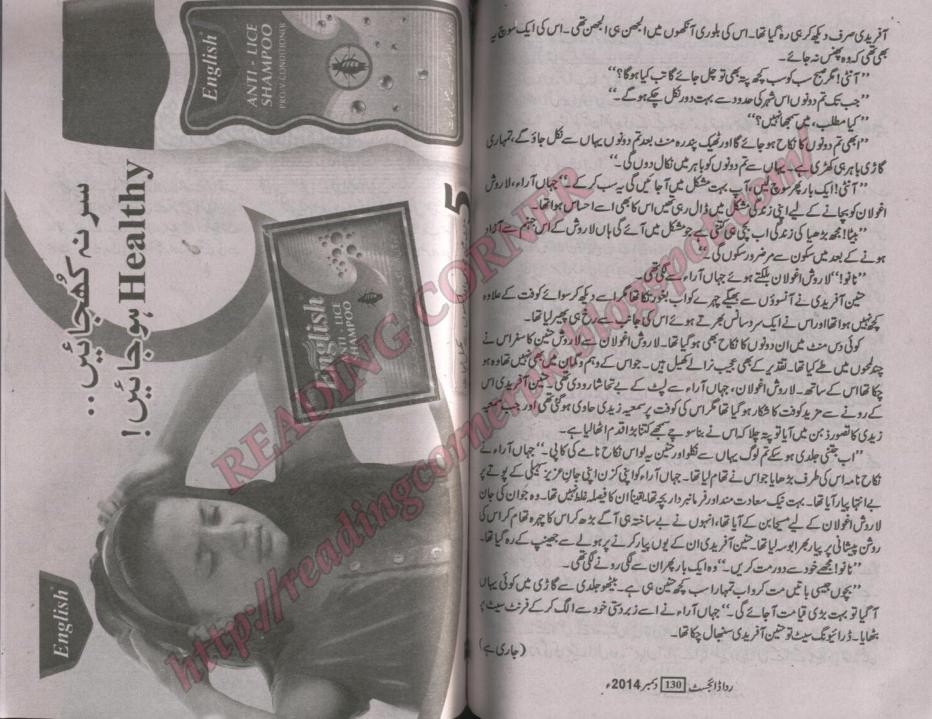 آفریدی صرف دیکھ کر ہی رہ گیا تھا۔ اس کی بلوری آنکھوں میں الجھن ہی الجھن تھی۔ اس کی ایک سوچ یہ
بھی تھی کہ وہ پھنس نہ جائے۔
’’آنٹی! اگر صبح سب کو سب کچھ پتہ بھی تو چل جائے گا تب کیا ہوگا؟‘‘
’’جب تک تم دونوں اس شہر کی حدود سے بہت دور نکل چکے ہوگے۔‘‘
’’کیا مطلب، میں سمجھا نہیں؟‘‘
’’ابھی تم دونوں کا نکاح ہو جائے گا اور ٹھیک پندرہ منٹ بعد تم دونوں یہاں سے نکل جاؤ گے، تمہاری
گاڑی باہر ہی کھڑی ہے۔ یہاں سے تم دونوں کو باہر میں نکال دوں گی۔‘‘
’’آنٹی! ایک بار پھر سوچ لیں، آپ بہت مشکل میں آ جائیں گی یہ سب کر کے۔‘‘ جہاں آراء، لاروش
اغولان کو بچانے کے لیے اپنی زندگی مشکل میں ڈال رہی تھیں اس کا بھی اسے احساس ہوا تھا۔
’’بیٹا! مجھ بڑھیا کی زندگی اب بچی ہی کتنی ہے جو مشکل میں آئے گی ہاں لاروش کے اس جہنم سے آزاد
ہونے کے بعد میں سکون سے مر ضرور سکوں گی۔‘‘
’’نانو!‘‘ لاروش اغولان بلکتے ہوئے جہاں آراء سے لگی تھی۔
حنین آفریدی نے آنسوؤں سے بھیگے چہرے کو اب بغور تکا تھا مگر اسے دیکھ کر سوائے کوفت کے علاوہ
کچھ نہیں ہوا تھا اور اس نے ایک سرد سانس بھرتے ہوئے اس کی جانب سے رخ ہی پھیر لیا تھا۔
کوئی دس منٹ میں ان دونوں کا نکاح بھی ہو گیا تھا۔ لاروش اغولان سے لاروش حنین کا سفر اس نے
چند لمحوں میں طے کیا تھا۔ تقدیر کے بھی عجیب نرالے کھیل ہیں۔ جو اس کے وہم و گمان میں بھی نہیں تھا وہ ہو
چکا تھا اس کے ساتھ۔ لاروش اغولان، جہاں آراء سے لپٹ کے بے تحاشا رو دی تھی۔ حنین آفریدی اس
کے رونے سے مزید کوفت کا شکار ہو گیا تھا مگر اس کی کوفت پر سمعیہ زیدی حاوی ہو گئی تھی اور جب سمعیہ
زیدی کا تصور ذہن میں آیا تو پتہ چلا کہ اس نے بنا سوچے سمجھے کتنا بڑا قدم اٹھا لیا ہے۔
’’اب جتنی جلدی ہو سکے تم لوگ یہاں سے نکلو اور حنین یہ لو اس نکاح نامے کی کاپی۔‘‘ جہاں آراء نے
نکاح نامہ اس کی طرف بڑھایا جو اس نے تھام لیا تھا۔ جہاں آراء کو اپنی کزن اپنی جان عزیز سہیلی کے پوتے پر
بے انتہا پیار آیا تھا۔ بہت نیک سعادت مند اور فرمانبردار بچہ تھا یقیناً ان کا فیصلہ غلط نہیں تھا۔ وہ جو ان کی جان
لاروش اغولان کے لیے مسیحا بن کے آیا تھا، انہوں نے بے ساختہ ہی آگے بڑھ کر اس کا چہرہ تھام کر اس کی
روشن پیشانی پر پیار بھرا بوسہ لیا تھا۔ حنین آفریدی ان کے یوں پیار کرنے پر ہولے سے جھینپ کے رہ گیا تھا۔
’’نانو! مجھے خود سے دور مت کریں۔‘‘ وہ ایک بار پھر ان سے لگی رونے لگی تھی۔
’’بچوں جیسی باتیں مت کرو اب تمہارا سب کچھ حنین ہی ہے۔ بیٹھو جلدی سے گاڑی میں کوئی یہاں
آ گیا تو بہت بڑی قیامت آ جائے گی۔‘‘ جہاں آراء نے اسے زبردستی خود سے الگ کر کے فرنٹ سیٹ پر
بٹھایا۔ ڈرائیونگ سیٹ تو حنین آفریدی سنبھال چکا تھا۔
(جاری ہے)
ردا ڈائجسٹ 130 دسمبر 2014ء
English
ANTI - LICE
SHAMPOO
PRO-V CONDITIONER
سر نہ کُھجائیں..
Healthy ہو جائیں!
English
ANTI - LICE
SHAMPOO
English
READING CORNER
http://readingcornerpk.blogspot.com/